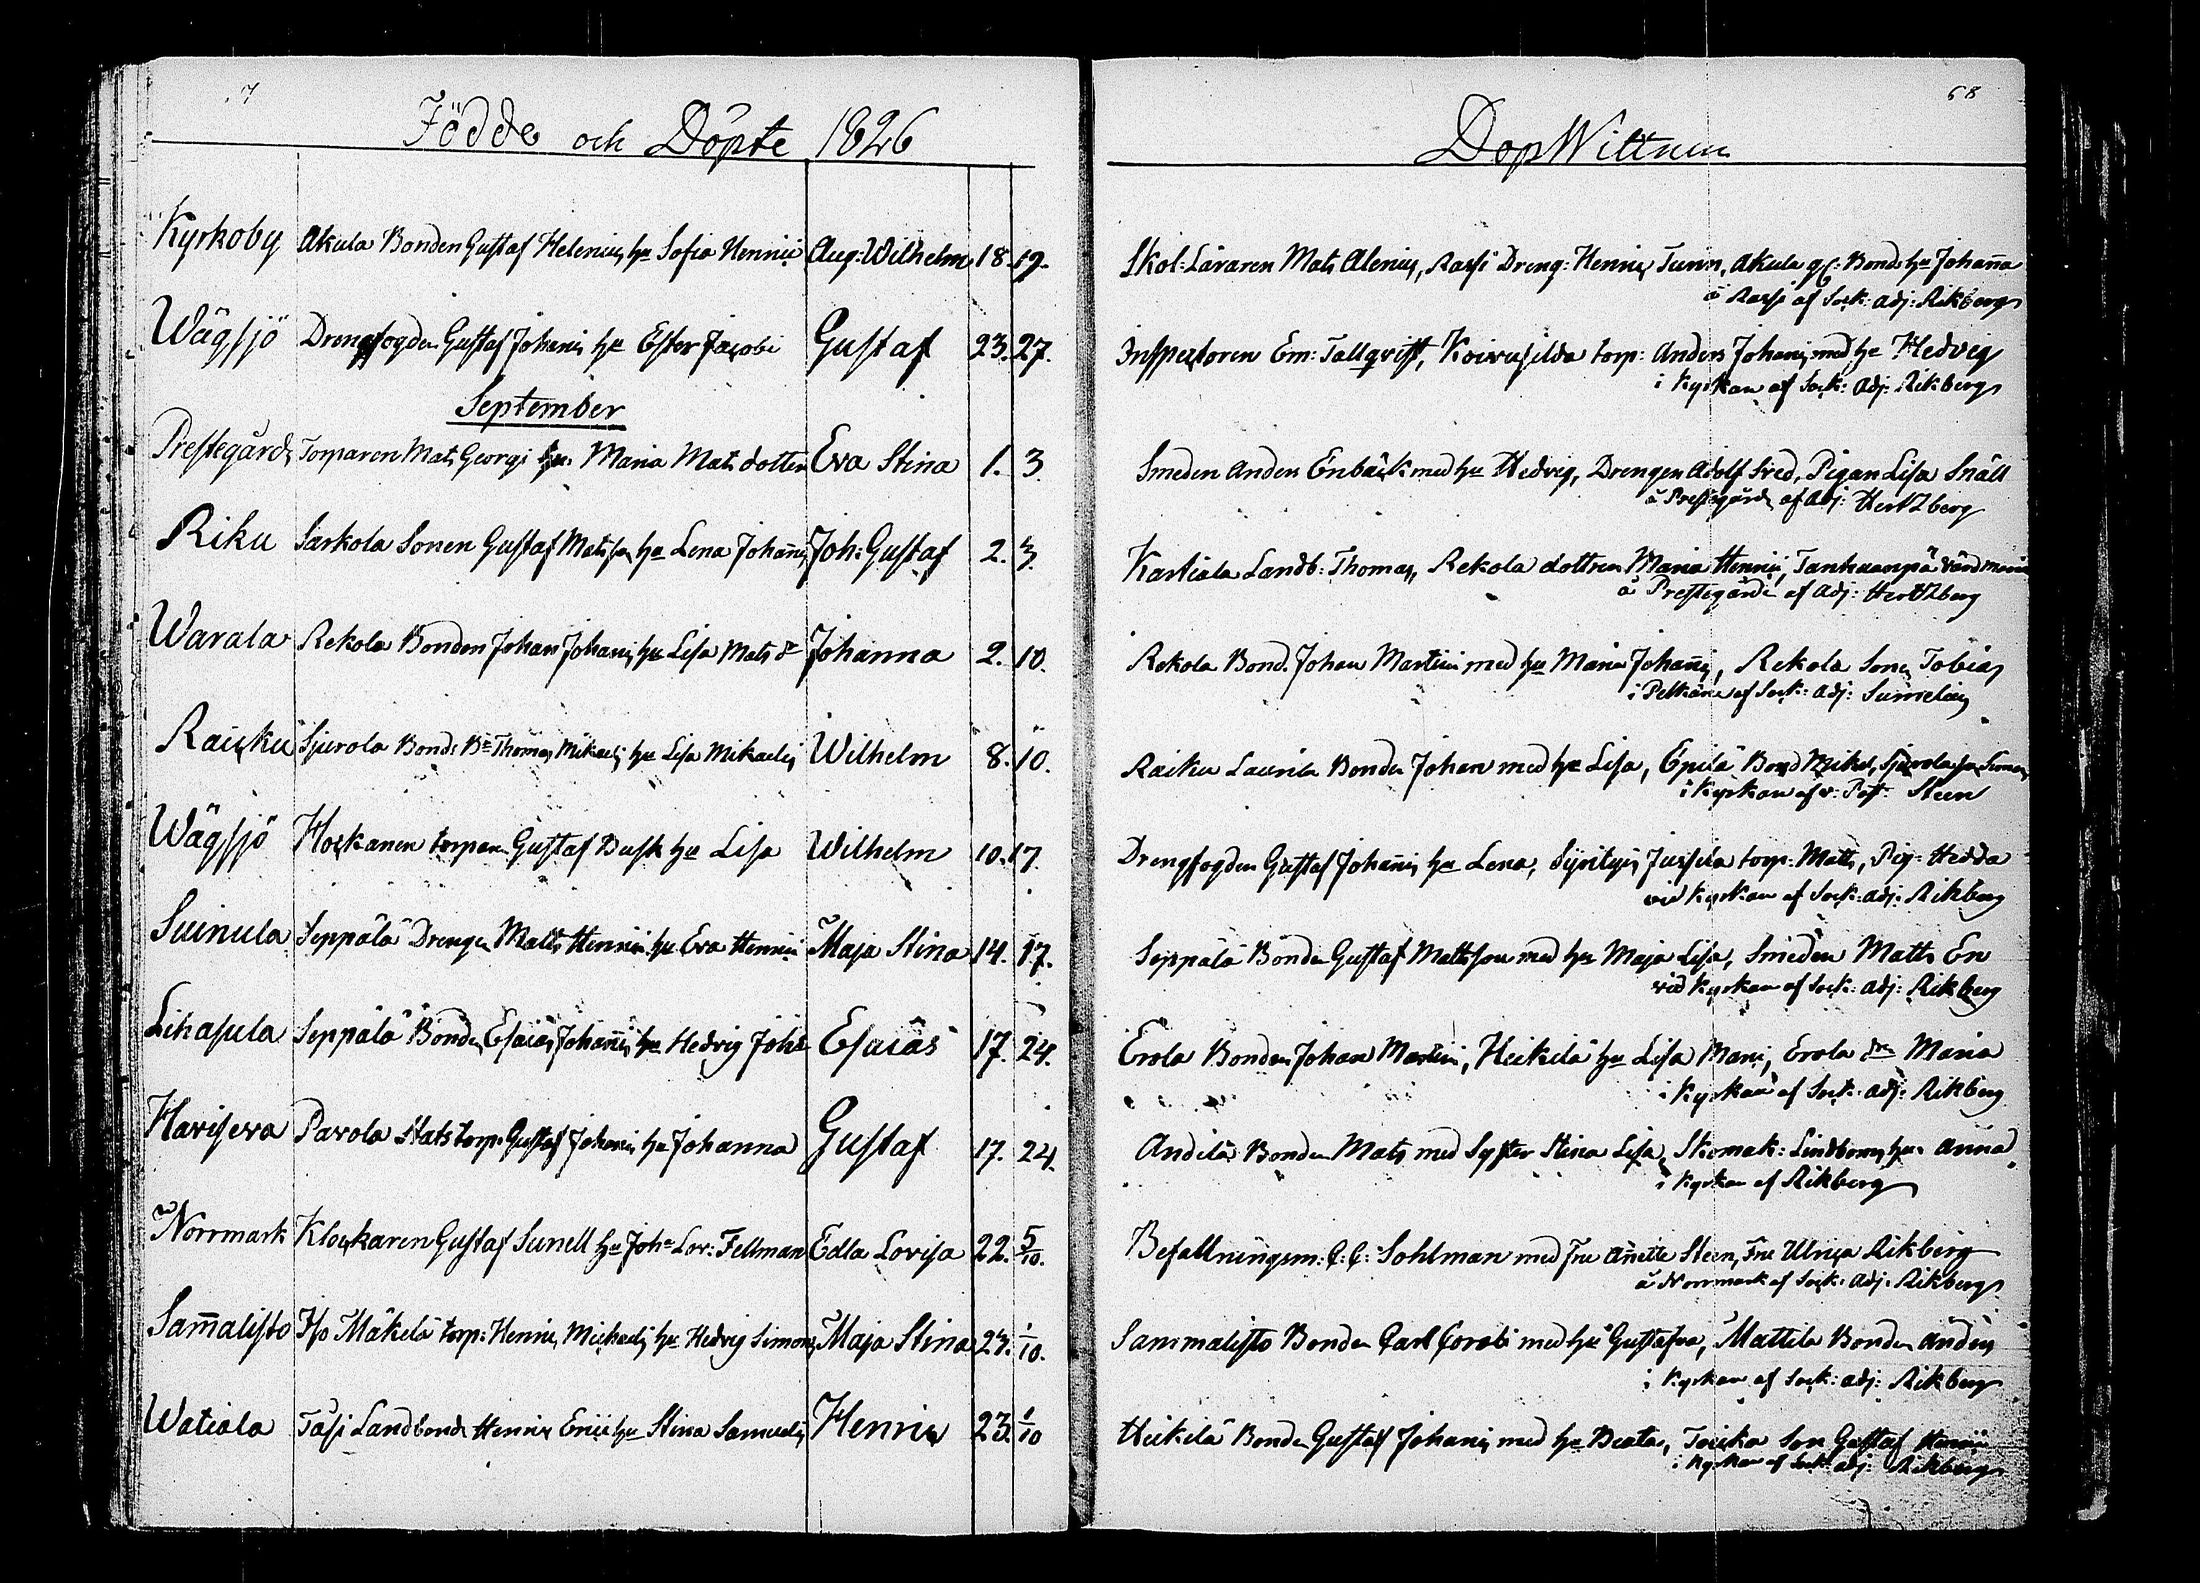 7
Födde och Döpte 1826
Kyrkoby Akula Bonden Gustaf Helenius hu Sofia Henrici Aug: Wilhelm 18. 19.
Wägsjö Drengfogden Gustaf Johanis hu Ester Jacobi Gustaf 23. 27.
September
Prestegårds Torparen Mats Georgi hu Maria Mats dotter Eva Stina 1. 3.
Riku Sarkola Sonen Gustaf Mats son hu Lena Johanis Joh: Gustaf 2. 3.
Warala Rekola Bonden Johan Johanis hu Lisa Mats dr Johanna 2. 10.
Raicku Sjurola Bonds Br Thomas Mikaels hu Lisa Mikaelis Wilhelm 8. 10.
Wägsjö Hockanen torparn Gustaf Busk hu Lisa Wilhelm 10. 17.
Suinula Seppälä Drengen Matts Henrici hu Eva Henrici Maja Stina 14. 17.
Lihasula Seppälä Bonden Esaias Johanis hu Hedvig Johs Esaias 17. 24.
Haviseva Parola Stats torp: Gustaf Johanis hu Johanna Gustaf 17. 24.
Norrmark Klockaren Gustaf Sunell hu Joha Lov: Fellman Edla Lovisa 22. 5/10.
Sam̄alisto Iso Mäkelä torp: Henric Michaels hu Hedvig Simons Maja Stina 23. 1/10.
Watiala Tåsi Landbonde Henric Erici hu Stina Samuelis Henric 23. 1/10
68
DopWittnen
Skol-Läraren Mats Alenius, Rassi Dreng: Henric Tunn, Akula gl: Bonds hu Johan̄a
å Rassi af Sock: adj: Rikberg
Inspectoren Em: Tallqvist, torp: Anders Johanis med hu Hedvig
i Kyrkan af Sock: Adj: Rikberg
Smeden Anders Enbäck med hu Hedvig, Drengen Adolf Fred, Pigan Lisa Snäll
å Prestegårds af Adj: Hertzberg
Kartiala Landb: Thomas, Rekola dottren Maria Henrici, Tanhuanpä värd
å Prestegården af Adj: Hertzberg
Rekola Bond. Johan Martini med hu Maria Johanis, Rekola Son Tobias
i Pelkäne af Sock: Adj: Sumelius
Raiku Laurila Bonden Johan med hu Lisa, Epilä Bond Mikel, Sjurola
i Kyrkan af v: Past: Steen
Drengfogden Gustaf Johanis hu Lena, Jussila torp: Matts, Pig: Hedda
vid Kyrkan af Sock: adj: Rikberg
Seppälä Bonden Gustaf Mattsson med hu Maja Lisa, Smeden Matts En
vid Kyrkan af Sock: adj: Rikberg
Erola Bonden Johan Martini, Heikilä hu Lisa Mari, Erola dr Maria
i Kyrkan af Sock: adj: Rikberg
Andilä Bonden Mats med Syster Stina Lisa, Skomak: Lindboms hu Anna
i Kyrkan af Rikberg
Befallningsm: C: G: Sohlman med Fru Annette Steen, Fru Ulrica Rikberg
å Norrmark af Sock: Adj: Rikberg
Sammalisto Bonden Carl med hu Gustafva, Mattila Bonden Anders
i Kyrkan af Sock: adj: Rikberg
Heikilä Bonden Gustaf Johanis med hu Beata, Son Gustaf Henrici
i Kyrkan af Sock: adj: Rikberg